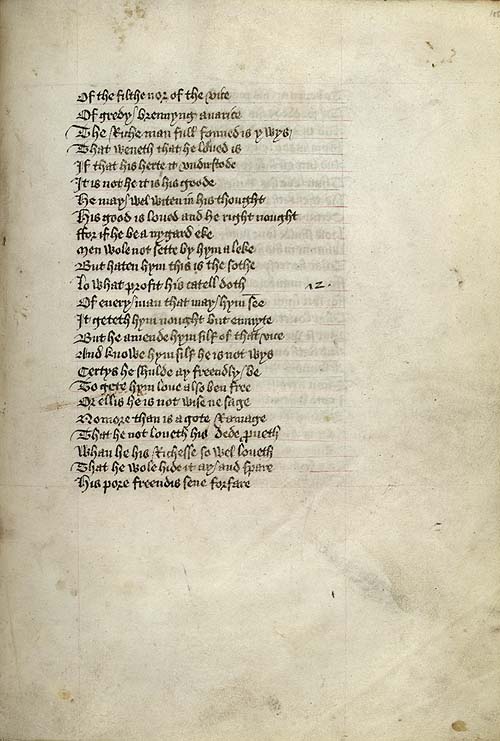 Of the filthe nor of the vice
Of gredy brennyng auarice
The Riche man full fonned is ywys
That weneth that he loued is
If that his herte it vndirstode
It is not he it is his goode
He may wel witen in his thought
His good is loued and he right nought
ffor if he be a nygard eke
Men wole not sette by hym a leke
But haten hym this is the sothe
lo what profit his catell doth
12.
Of euery man that may hym see
It geteth hym nought but enmyte
But he amende hym silf of that vice
And knowe hym silf he is not wys
Certys he shulde ay freendly be
To gete hym loue also ben free
Or ellis he is not wise ne sage
Nomore than is a gote Ramage
That he not loueth his dede proueth
Whan he his Richesse so wel loueth
That he wole hide it ay and spare
His pore freendis sene forfare